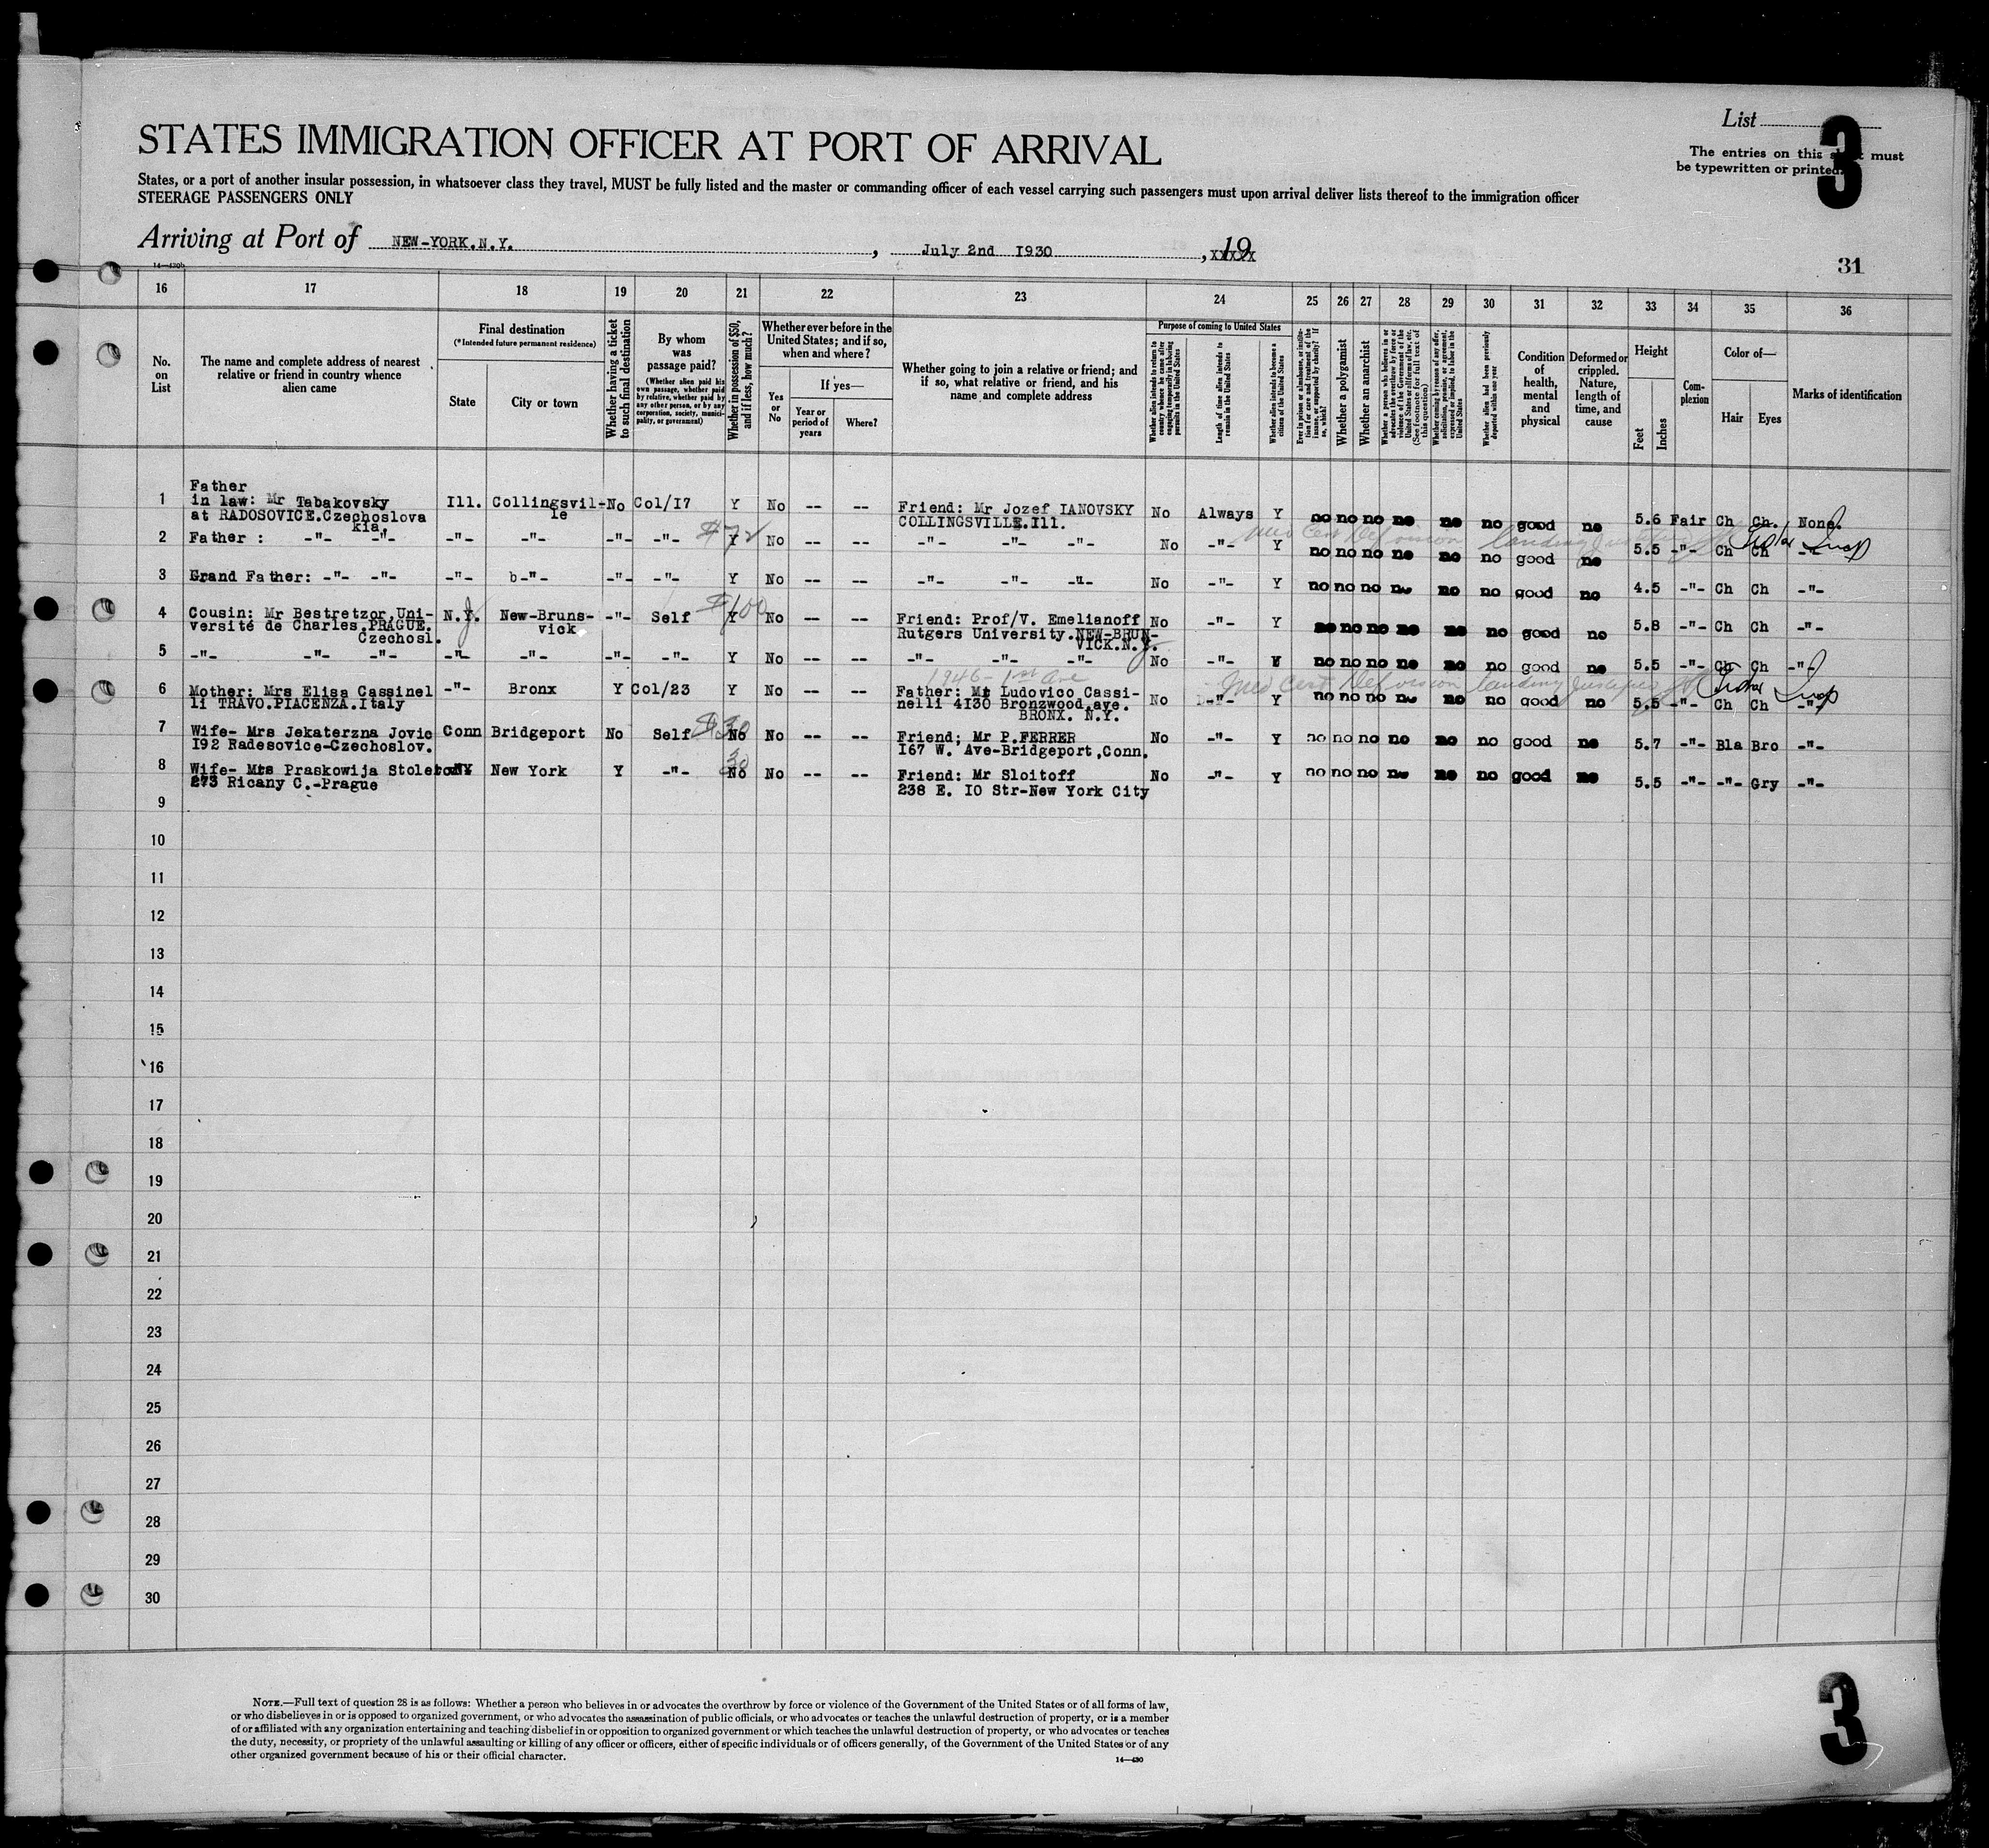 List 3
STATES IMMIGRATION OFFICER AT PORT OF ARRIVAL
The entries on this sheet must
be typewritten or printed.
States, or a port of another insular possession, in whatsoever class they travel, MUST be fully listed and the master or commanding officer of each vessel carrying such passengers must upon arrival deliver lists thereof to the immigration officer
STEERAGE PASSENGERS ONLY
Arriving at Port of NEW-YORK.N.Y. , July 2nd 1930 , 19
31
14—430b
16 17 18 19 20 21 22 23 24 25 26 27 28 29 30 31 32 33 34 35 36
No. on List
The name and complete address of nearest relative or friend in country whence alien came
Final destination
(*Intended future permanent residence)
State
City or town
Whether having a ticket to such final destination
By whom was passage paid?
(Whether alien paid his own passage, whether paid by relative, whether paid by any other person, or by any corporation, society, municipality, or government)
Whether in possession of $50, and if less, how much?
Whether ever before in the United States; and if so, when and where?
Yes or No
If yes—
Year or period of years
Where?
Whether going to join a relative or friend; and if so, what relative or friend, and his name and complete address
Purpose of coming to United States
Whether alien intends to return to country whence he came after engaging temporarily in laboring pursuits in the United States
Length of time alien intends to remain in the United States
Whether alien intends to become a citizen of the United States
Ever in prison or almshouse, or institution for care and treatment of the insane, or supported by charity? If so, which?
Whether a polygamist
Whether an anarchist
Whether a person who believes in or advocates the overthrow by force or violence of the Government of the United States or all forms of law, etc. (See footnote for full text of this question)
Whether coming by reason of any offer, solicitation, promise, or agreement, expressed or implied, to labor in the United States
Whether alien had been previously deported within one year
Condition of health, mental and physical
Deformed or crippled. Nature, length of time, and cause
Height
Feet
Inches
Complexion
Color of—
Hair
Eyes
Marks of identification
1 Father
in law: Mr Tabakovsky Ill. Collingsvil- No Col/I7 Y No -- -- Friend: Mr Jozef IANOVSKY No Always Y no no no no no no good no 5.6 Fair Ch Ch. None.
at RADOSOVICE.Czechoslova le COLLINGSVILLE.Ill.
kia.
2 Father : -"- -"- -"- -"- -"- -"- $72 Y No -- -- -"- -"- -"- No -"- Y no no no no no no good no 5.5 -"- Ch Ch -"-
3 Grand Father: -"- -"- -"- b-"- -"- -"- Y No -- -- -"- -"- -"- No -"- Y no no no no no no good no 4.5 -"- Ch Ch -"-
4 Cousin: Mr Bestretzor,Uni- N.J. New-Bruns- -"- Self $100 Y No -- -- Friend: Prof/V. Emelianoff No -"- Y no no no no no no good no 5.8 -"- Ch Ch -"-
versité de Charles.PRAGUE. vick Rutgers University.NEW-BRUN-
Czechosl. VICK.N.J.
5 -"- -"- -"- -"- -"- -"- -"- Y No -- -- -"- -"- -"- No -"- Y no no no no no no good no 5.5 -"- Ch Ch -"-
1946 - 1st Ave
6 Mother: Mrs Elisa Cassinel -"- Bronx Y Col/23 Y No -- -- Father: Mr Ludovico Cassi- No -"- Y no no no no no no good no 5.5 -"- Ch Ch -"-
li TRAVO.PIACENZA.Italy nelli 4I30 Bronzwood ave.
BRONX. N.Y.
7 Wife- Mrs Jekaterzna Jovic Conn Bridgeport No Self $30 No No -- -- Friend; Mr P.FERRER No -"- Y no no no no no no good no 5.7 -"- Bla Bro -"-
I92 Radesovice-Czechoslov. I67 W. Ave-Bridgeport,Conn.
8 Wife- Mrs Praskowija Stoletow NY New York Y -"- 30 No No -- -- Friend: Mr Sloitoff No -"- Y no no no no no no good no 5.5 -"- -"- Gry -"-
273 Ricany C.-Prague 238 E. IO Str-New York City
9
10
11
12
13
14
15
16
17
18
19
20
21
22
23
24
25
26
27
28
29
30
NOTE.—Full text of question 28 is as follows: Whether a person who believes in or advocates the overthrow by force or violence of the Government of the United States or of all forms of law,
or who disbelieves in or is opposed to organized government, or who advocates the assassination of public officials, or who advocates or teaches the unlawful destruction of property, or is a member
of or affiliated with any organization entertaining and teaching disbelief in or opposition to organized government or which teaches the unlawful destruction of property, or who advocates or teaches
the duty, necessity, or propriety of the unlawful assaulting or killing of any officer or officers, either of specific individuals or of officers generally, of the Government of the United States or of any
other organized government because of his or their official character.
14—430
3